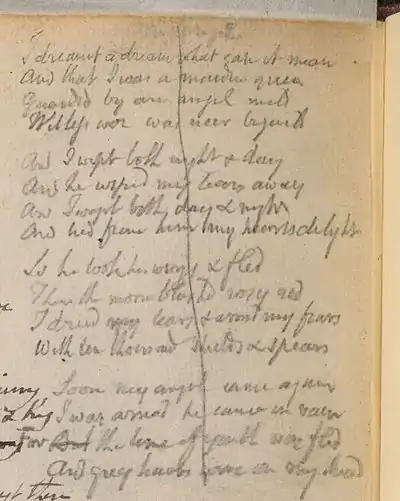 I dreamt a dream what can it mean
And that I was a maiden queen
Guarded by an angel mild
Witless woe was neer beguild
And I wept both night & day
And he wiped my tears away
And I wept both day & night
And hid from him my hearts delight
So he took his wings & fled
Then the morn blushd rosy red
I dried my tears & armd my fears
With ten thousand shields & spears
Soon my angel came again
I was armd he came in vain
For But the time of youth was fled
And grey hairs were on my head